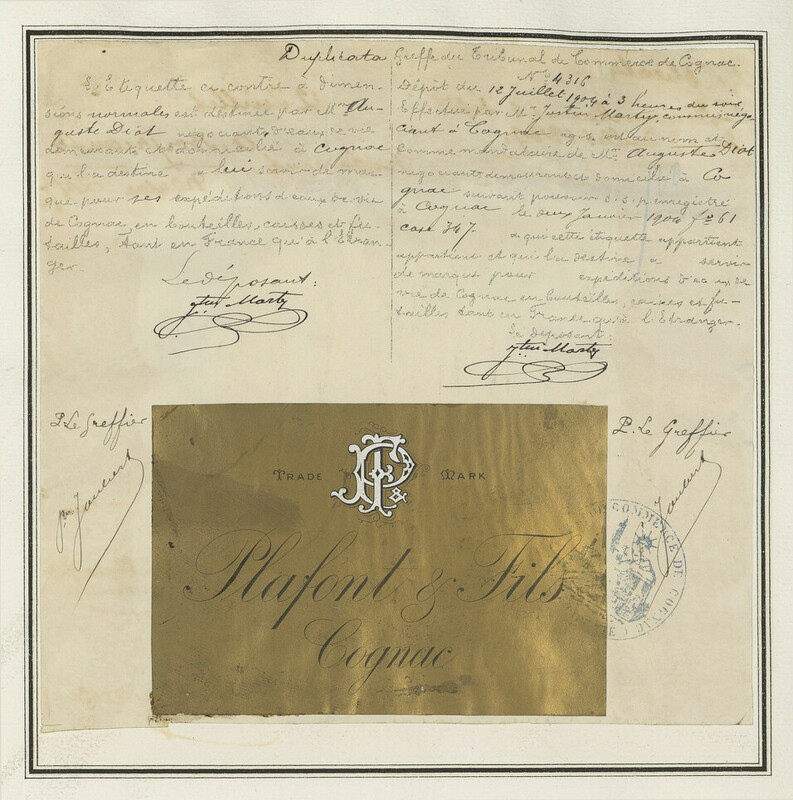 Duplicata
L'Etiquette ci contre à dimen-
sions normales est destinée par Mr Au-
guste Diot négociant d'eaux de vie
demeurant et domicilié à Cognac
qui l'a destine à lui servir de mar-
que pour ses expéditions d'eaux de vie
de Cognac, en bouteilles, caisses et fu-
tailles, tant en France qu'à l'Etran-
ger.
Le déposant:
Jtin Marty
Greffe du Tribunal de Commerce de Cognac.
No 4316
Dépôt du 12 Juillet 1904 à 3 heures du soir
Effectué par Mr Justin Marty, commis négo-
ciant à Cognac agissant au nom et
comme mandataire de Mr Auguste Diot
négociant demeurant et domicilié à Co
gnac suivant pouvoir s.s.p. enregistré
à Cognac le deux Janvier 1904 fo 61
case 347. à qui cette étiquette appartient
et qui l'a destine à servir
de marque pour expéditions d'eaux de
vie de Cognac en bouteilles, caisses et fu-
tailles tant en France qu'à l'Etranger.
Le déposant:
Jtin Marty
P. Le Greffier
P. Le Greffier
TRADE MARK
PF&
Plafont & Fils
Cognac
COMMERCE DE COGNAC